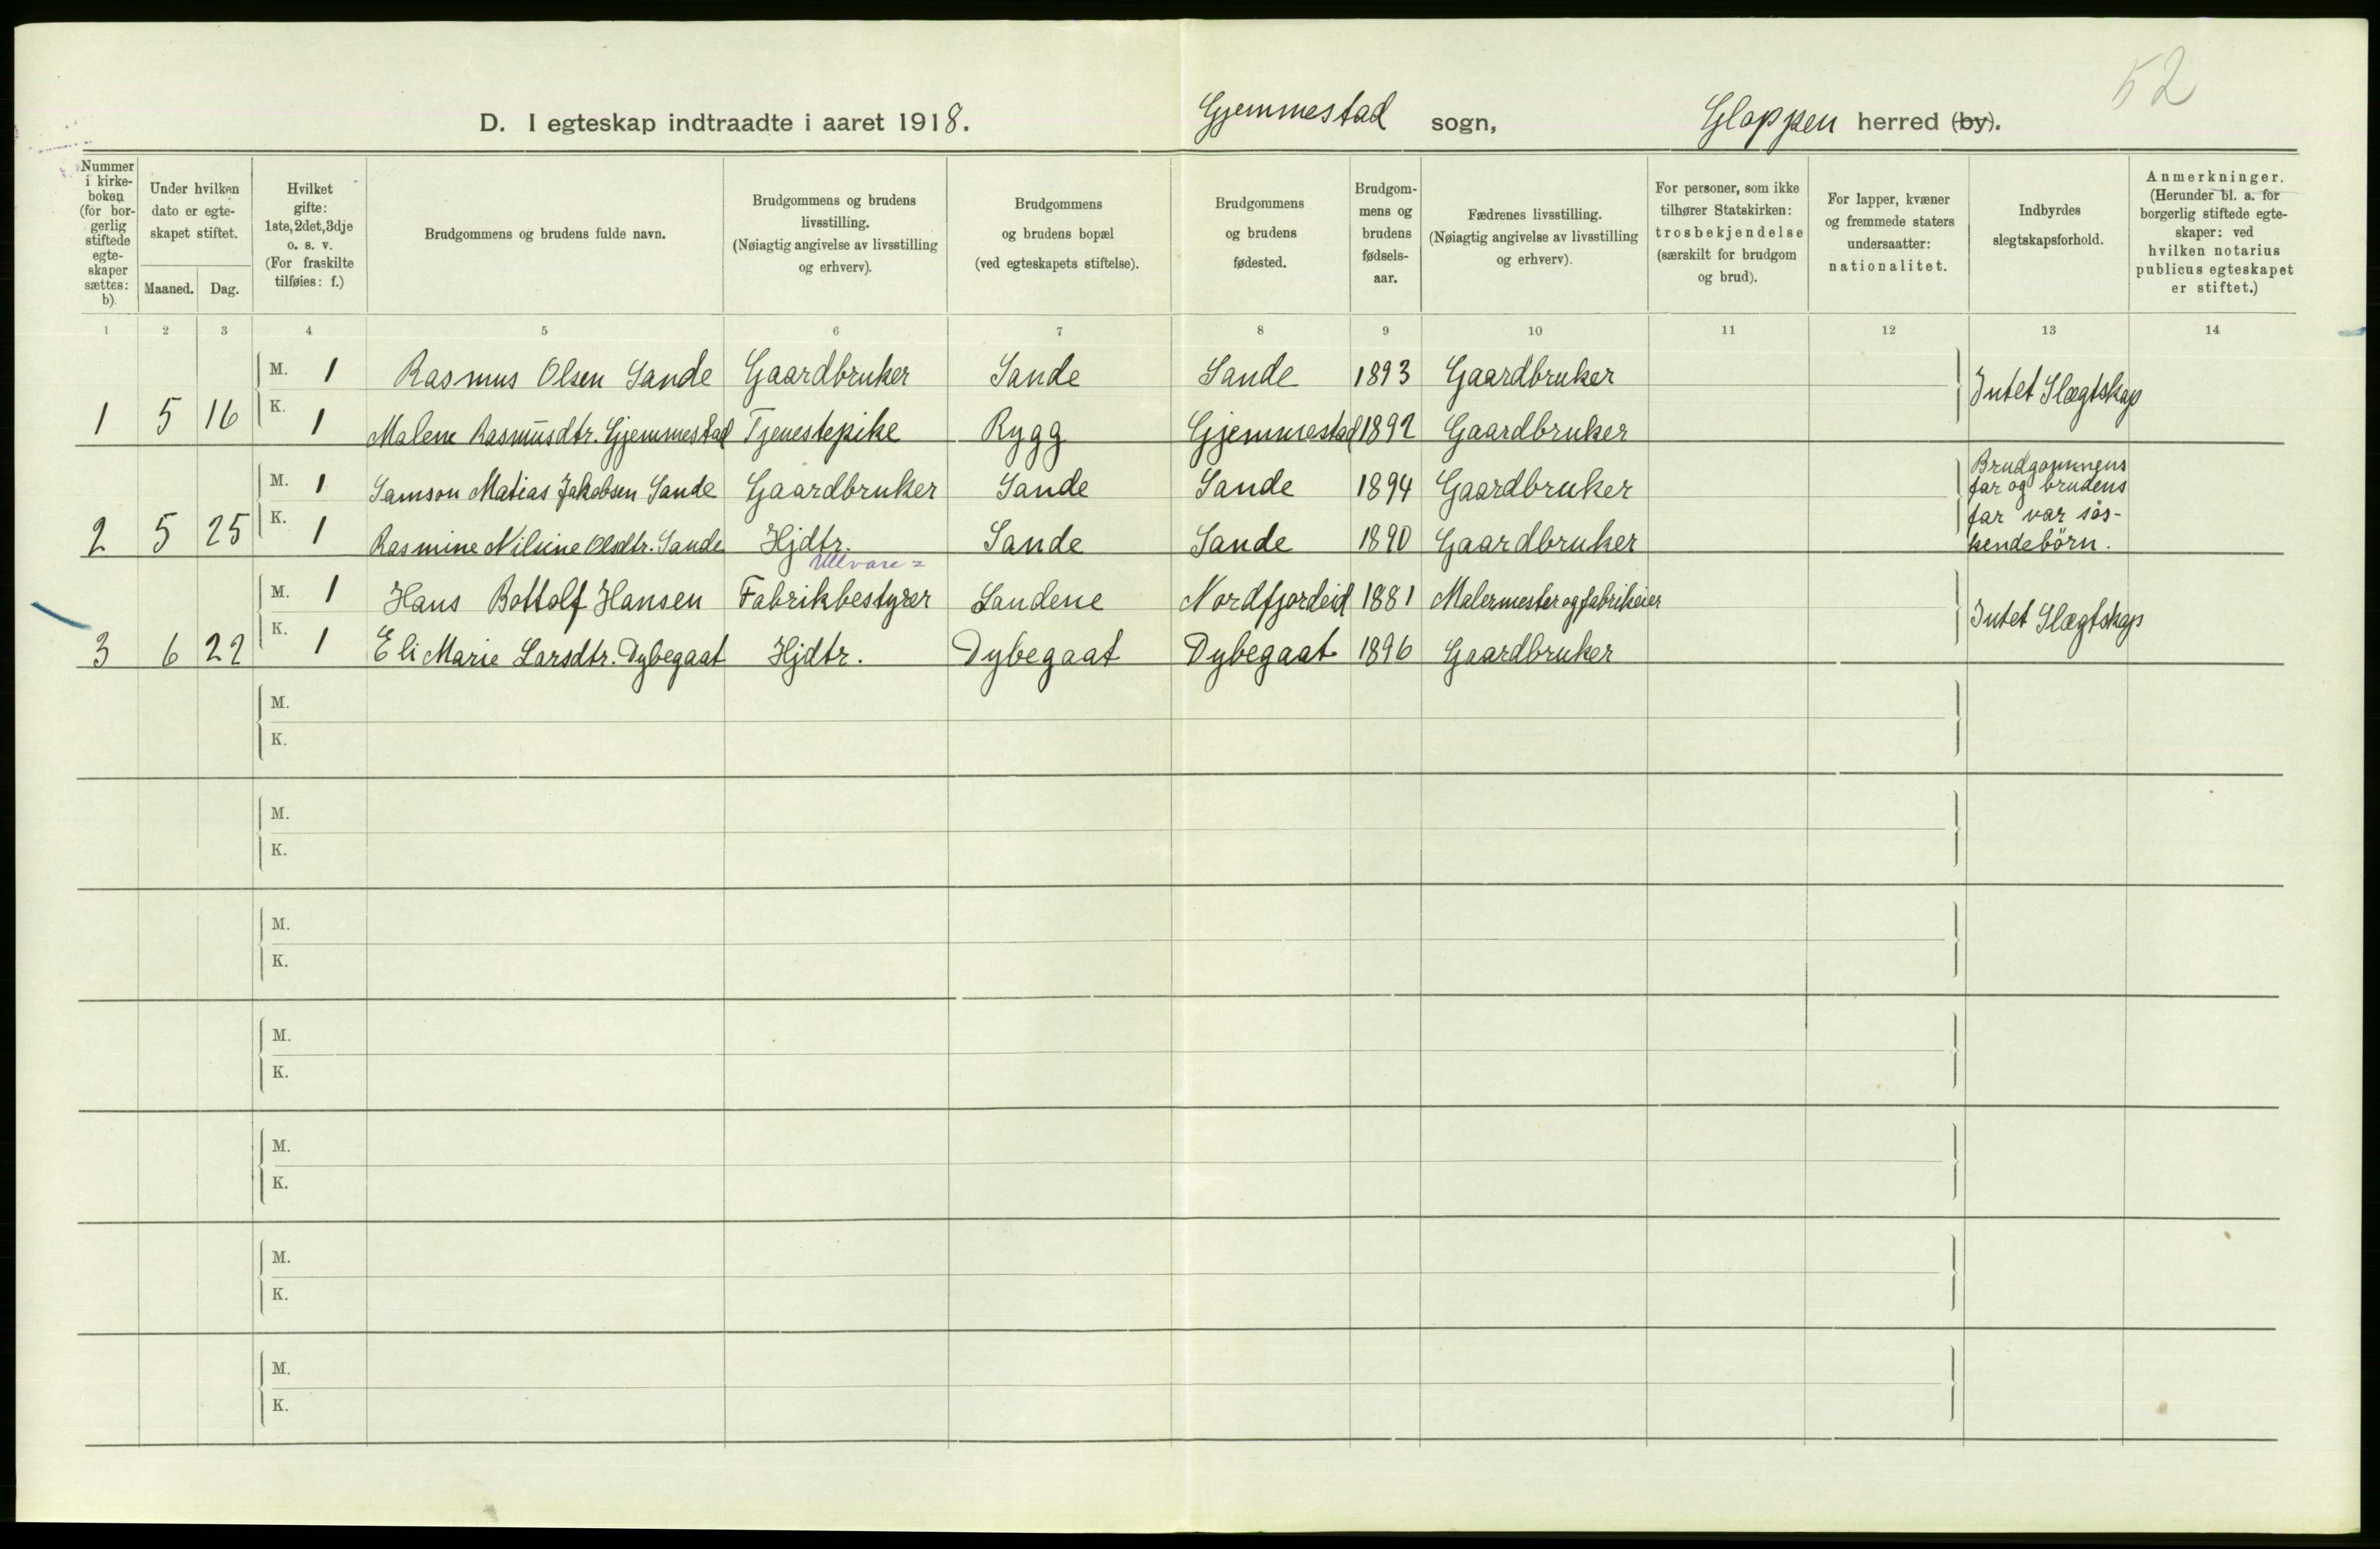 52
D. I egteskap indtraadte i aaret 1918. Gjemmestad sogn, Gloppen herred (by).
Nummer i kirke-boken (for bor-gerlig stiftede egte-skaper sættes: b).
Under hvilken dato er egte-skapet stiftet.
Maaned. Dag.
Hvilket gifte: 1ste, 2det, 3dje o. s. v. (For fraskilte tilføies: f.)
Brudgommens og brudens fulde navn.
Brudgommens og brudens livsstilling. (Nøiagtig angivelse av livsstilling og erhverv).
Brudgommens og brudens bopæl (ved egteskapets stiftelse).
Brudgommens og brudens fødested.
Brudgom-mens og brudens fødsels-aar.
Fædrenes livsstilling. (Nøiagtig angivelse av livsstilling og erhverv).
For personer, som ikke tilhører Statskirken: trosbekjendelse (særskilt for brudgom og brud).
For lapper, kvæner og fremmede staters undersaatter: nationalitet.
Indbyrdes slegtskapsforhold.
Anmerkninger. (Herunder bl. a. for borgerlig stiftede egte-skaper: ved hvilken notarius publicus egteskapet er stiftet.)
1 2 3 4 5 6 7 8 9 10 11 12 13 14
M. 1 Rasmus Olsen Sande Gaardbruker Sande Sande 1893 Gaardbruker Intet Slægtskap
1 5 16 K. 1 Malene Rasmusdtr. Gjemmestad Tjenestepike Rygg Gjemmestad 1892 Gaardbruker
M. 1 Samson Matias Jakobsen Sande Gaardbruker Sande Sande 1894 Gaardbruker Brudgommens
far og brudens
far var søs-
kendebörn.
2 5 25 K. 1 Rasmine Nilsine Olsdtr. Sande Hjdtr. Sande Sande 1890 Gaardbruker
Ullvare=
M. 1 Hans Bottolf Hansen Fabrikbestyrer Sandene Nordfjordeid 1881 Malermester og fabrikeier Intet Slægtskap
3 6 22 K. 1 Eli Marie Larsdtr. Dybegaat Hjdtr. Dybegaat Dybegaat 1896 Gaardbruker
M.
K.
M.
K.
M.
K.
M.
K.
M.
K.
M.
K.
M.
K.